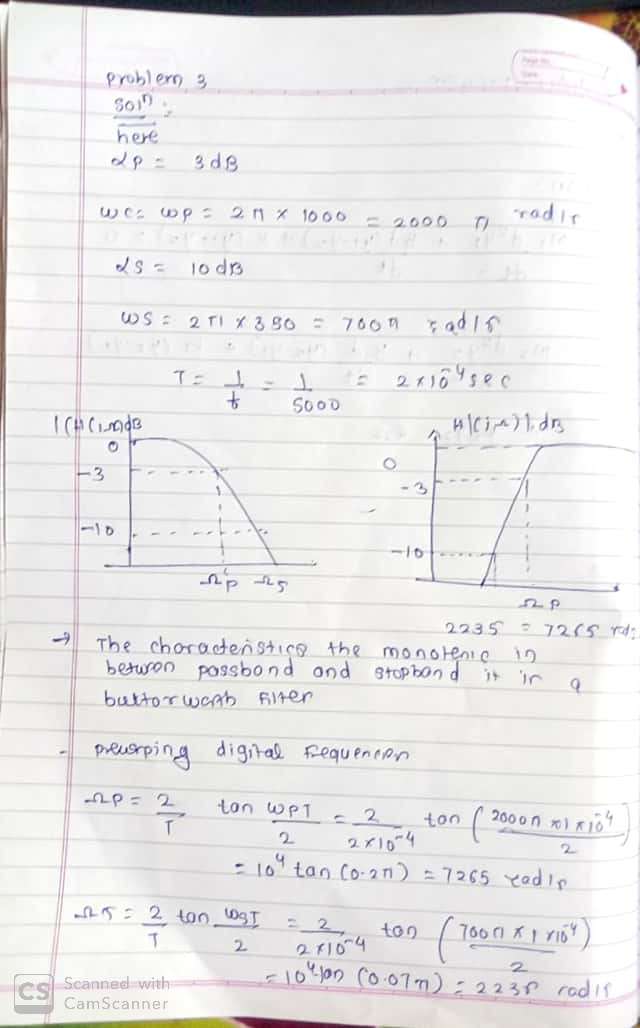 problem 3
Soln :
here
αp = 3 dB
wc = wp = 2π × 1000 = 2000 π rad/s
αs = 10 dB
ws = 2π × 350 = 700π rad/s
T = 1/f = 1/5000 = 2×10⁻⁴ sec
|(H(jΩ)dB
0
-3
-10
Ω'p Ωs
H|(jΩ)|, dB
0
-3
-10
Ωp
2235 = 7265 rd:
→ The characteristics the monotenic in
betwen passband and stopband it in a
buttorworth Filter
- prewrping digital Fequencen
Ωp = 2/T tan wpT/2 = 2/2×10⁻⁴ tan (2000π ×1×10⁻⁴/2)
= 10⁴ tan (0.2π) = 7265 rad/s
Ωs = 2/T tan wsT/2 = 2/2×10⁻⁴ tan (700π × 1×10⁻⁴/2)
= 10⁴ tan (0.07π) = 2235 rad/s
CS Scanned with
CamScanner